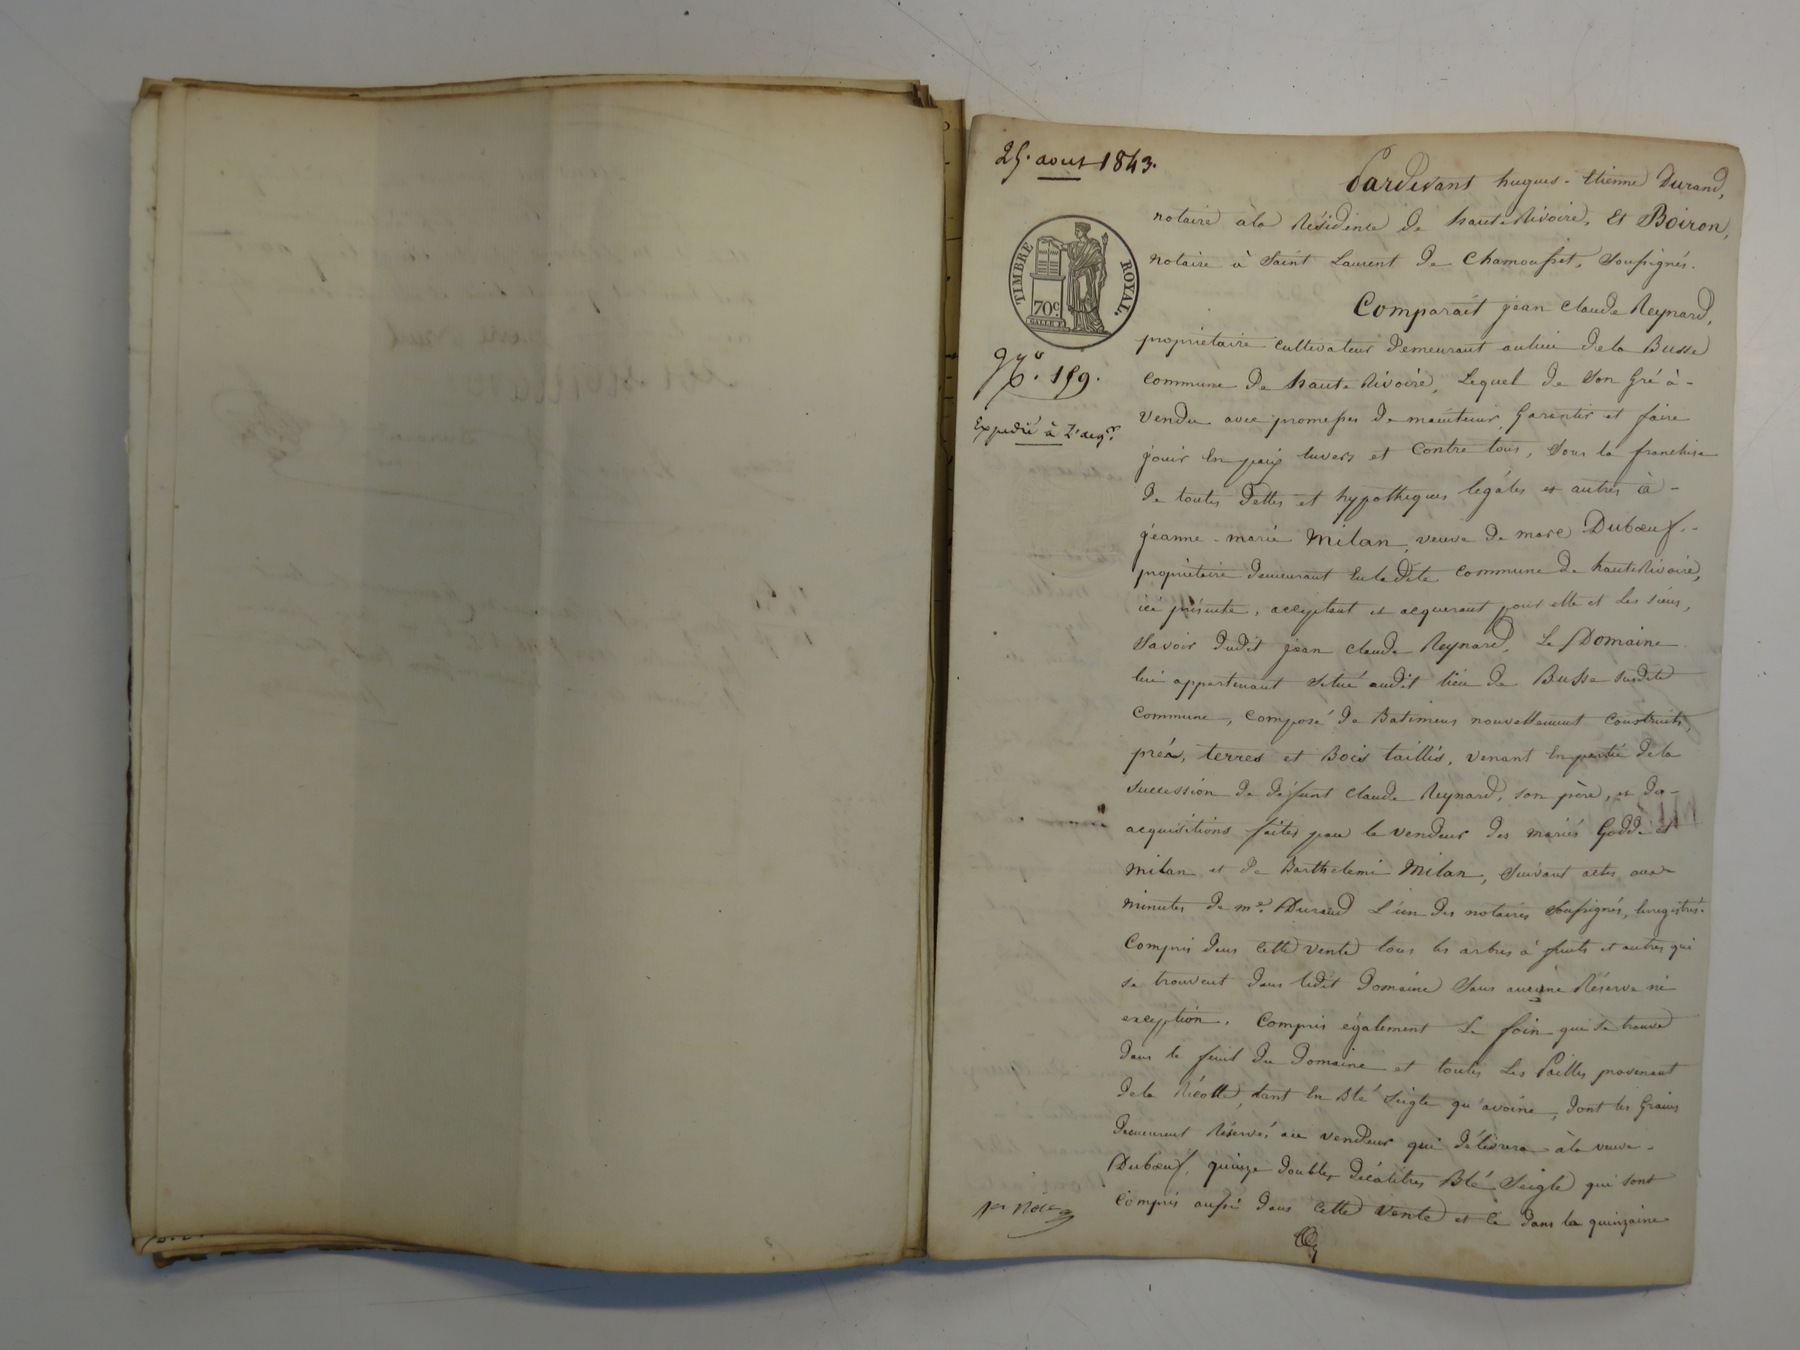 25. aout 1843.
TIMBRE ROYAL.
70c
N.o 159.
Expedié à l'acqr.
Pardevant hugues-Etienne Durand,
notaire à la Résidence de haute Rivoire, Et Boiron,
notaire à Saint Laurent de Chamousset, Soussignés.
Comparait jean claude Reynard,
propriétaire cultivateur demeurant au lieu de la Busse
commune de haute Rivoire, Lequel de son Gré à
vendu avec promesses de maintenir, Garantir et faire
jouir En paix Envers et Contre tous, sous la franchise
de toutes dettes et hypotheques légales et autres à
jeanne-marie Milan, veuve de marc Dubœuf,
propriétaire demeurant En la dite Commune de haute Rivoire,
ici présente, acceptant et acquerant pour elle et Les siens,
Savoir dudit jean claude Reynard, Le Domaine
lui appartenant situé audit lieu de Busse susdite
Commune, composé de Batimens nouvellement construits,
prés, terres et Bois taillis, venant En partie de la
succession de défunt claude Reynard, son père, et des
acquisitions faites par le vendeur des mariés Godde et
Milan et de Barthelemi Milan, suivant actes aux
minutes de me. Durand L'un des notaires soussignés, Enregistrés.
Compris dans cette vente tous les arbres à fruits et autres qui
se trouvent dans ledit Domaine sans aucune Réserve ni
exception. Compris également Le foin qui se trouve
dans le fenil du Domaine et toutes Les Pailles provenant
de la Récolte, tant En Blé Seigle qu'avoine, dont les Grains
demeurent Réservés au vendeur qui délivrera à la veuve
Dubœuf, quinze doubles décalitres Blé Seigle qui sont
compris aussi dans cette vente et ce dans la quinzaine